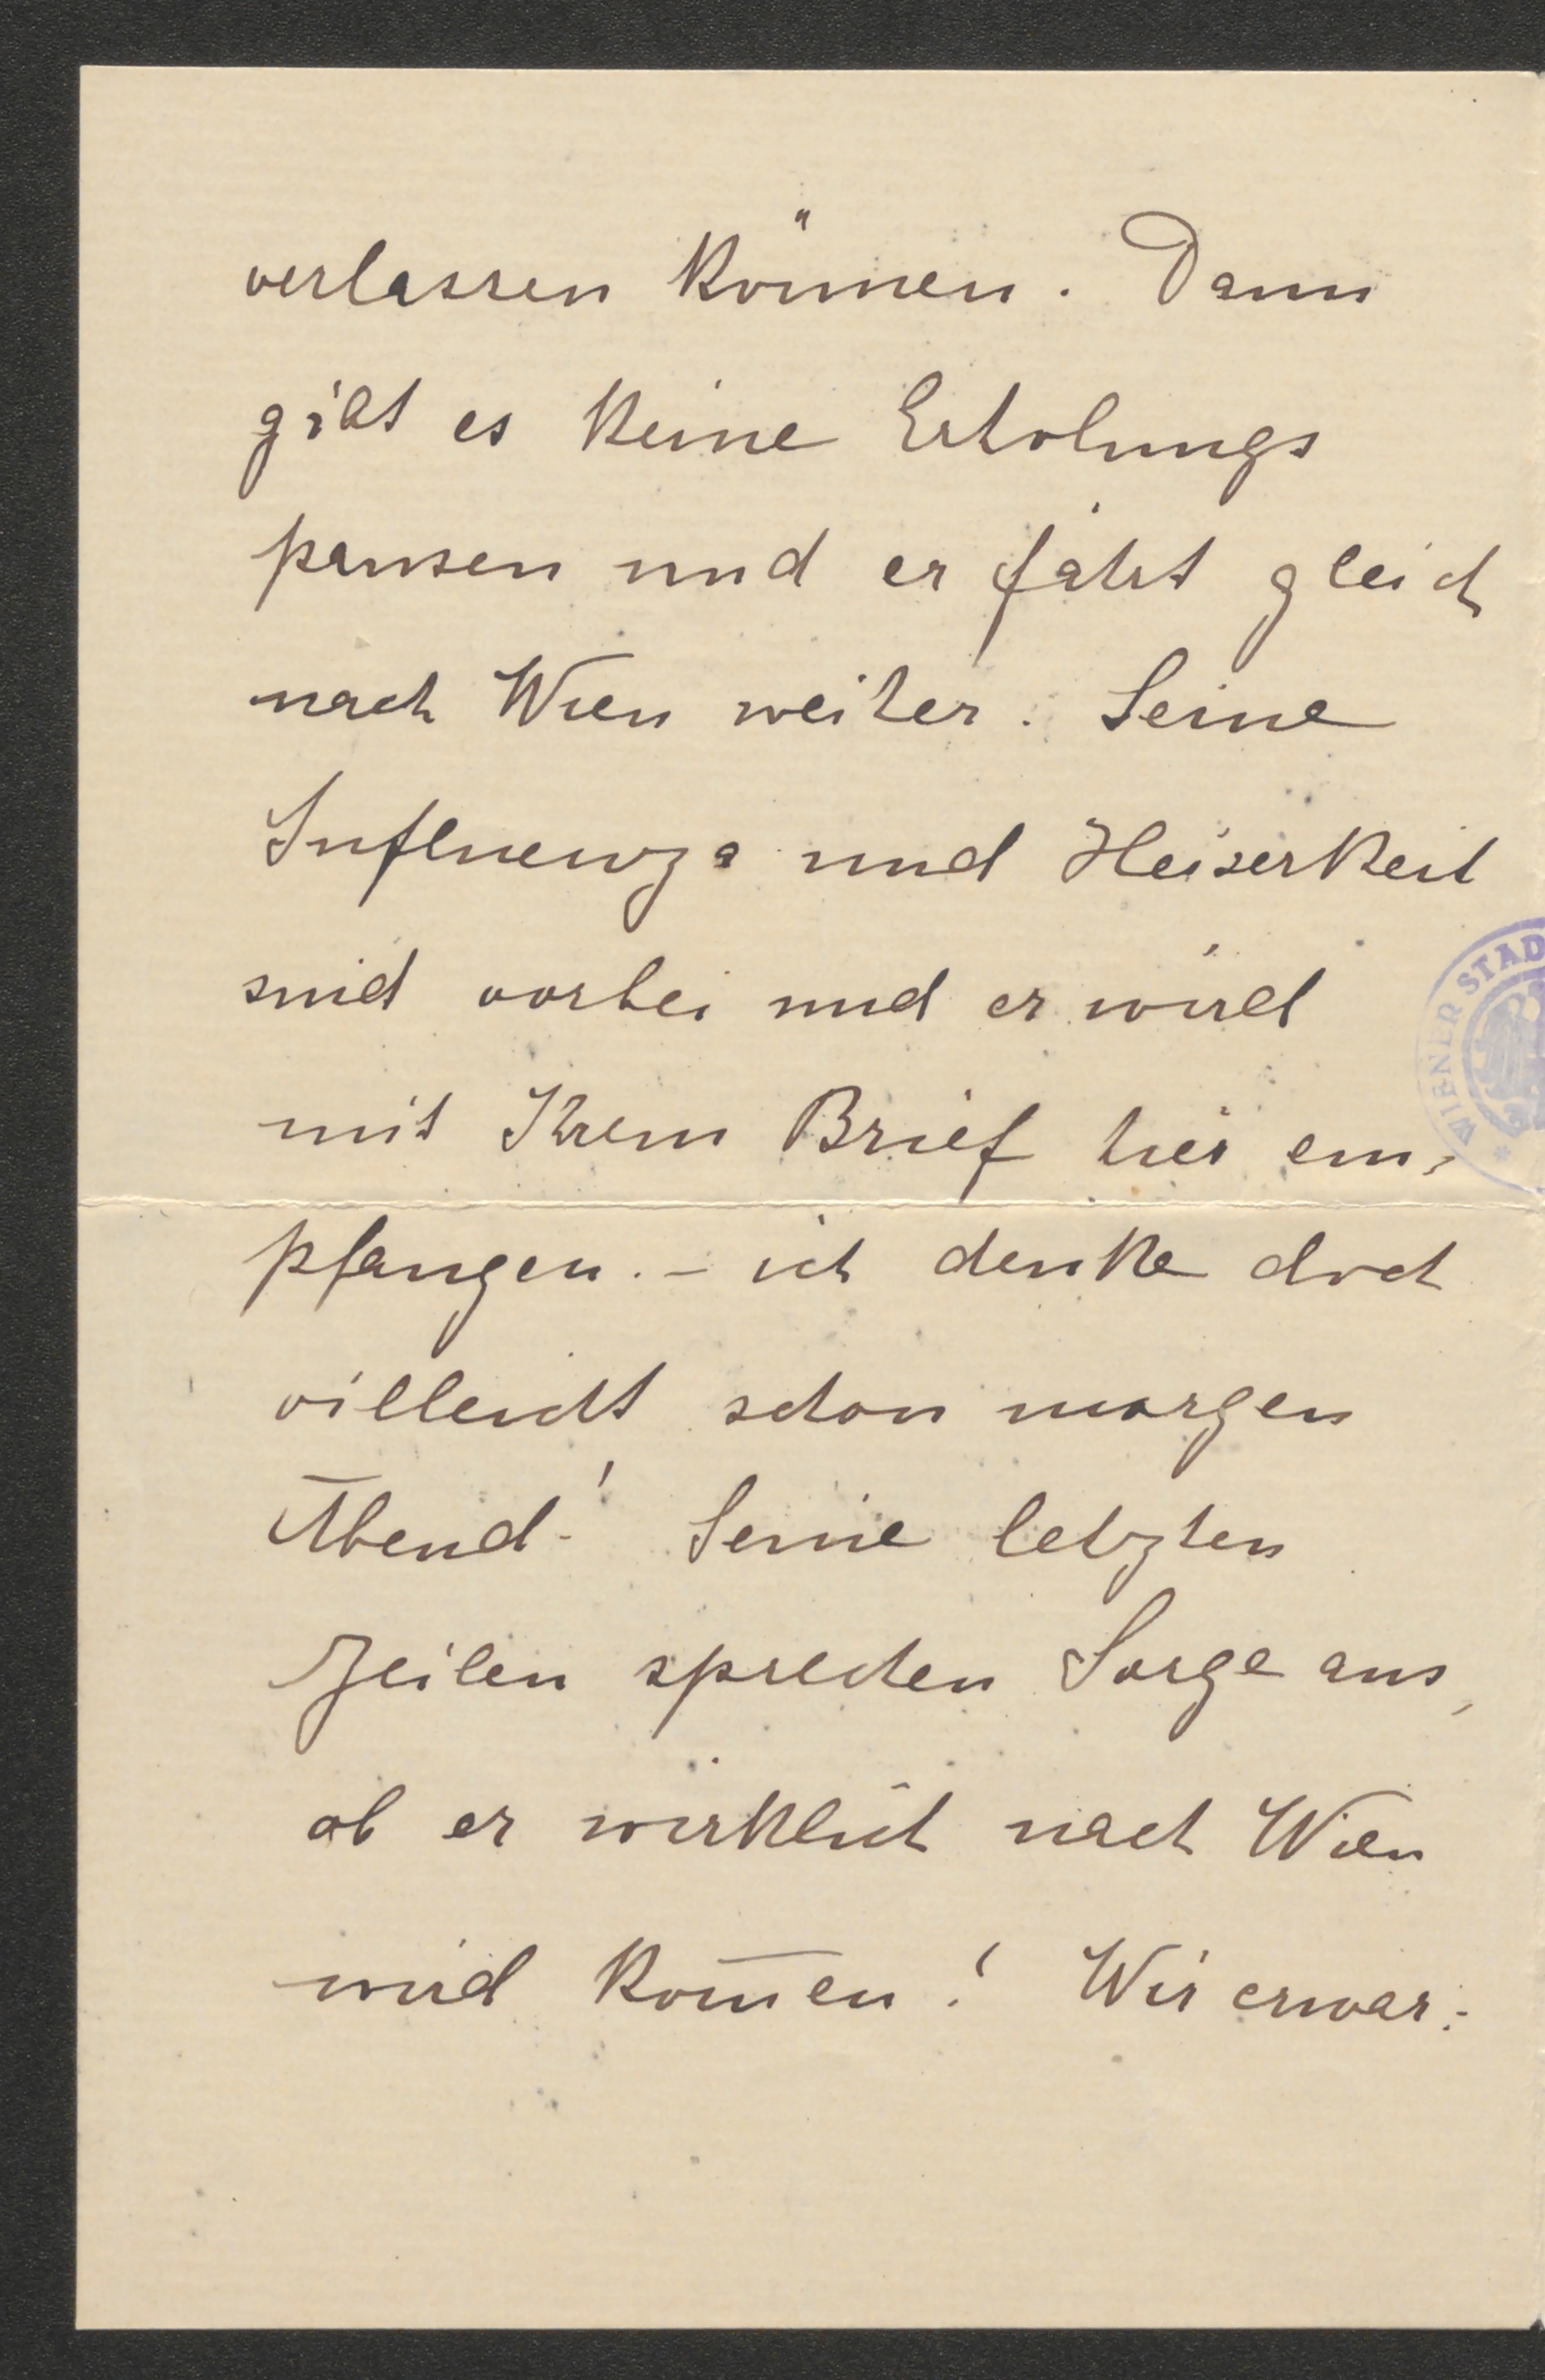 verlassen können. Dann
gibt es keine Erholungs
pausen und er fährt gleich
nach Wien weiter. Seine
Influenza und Heiserkeit
sind vorbei und er wird
mit Ihrem Brief hier em-
pfangen. – ich denke doch
villeicht schon morgen
Abend! Seine letzten
Zeilen sprechen Sorge aus,
ob er wirklich nach Wien
wird kom̄en! Wir erwar-
WIENER STAD